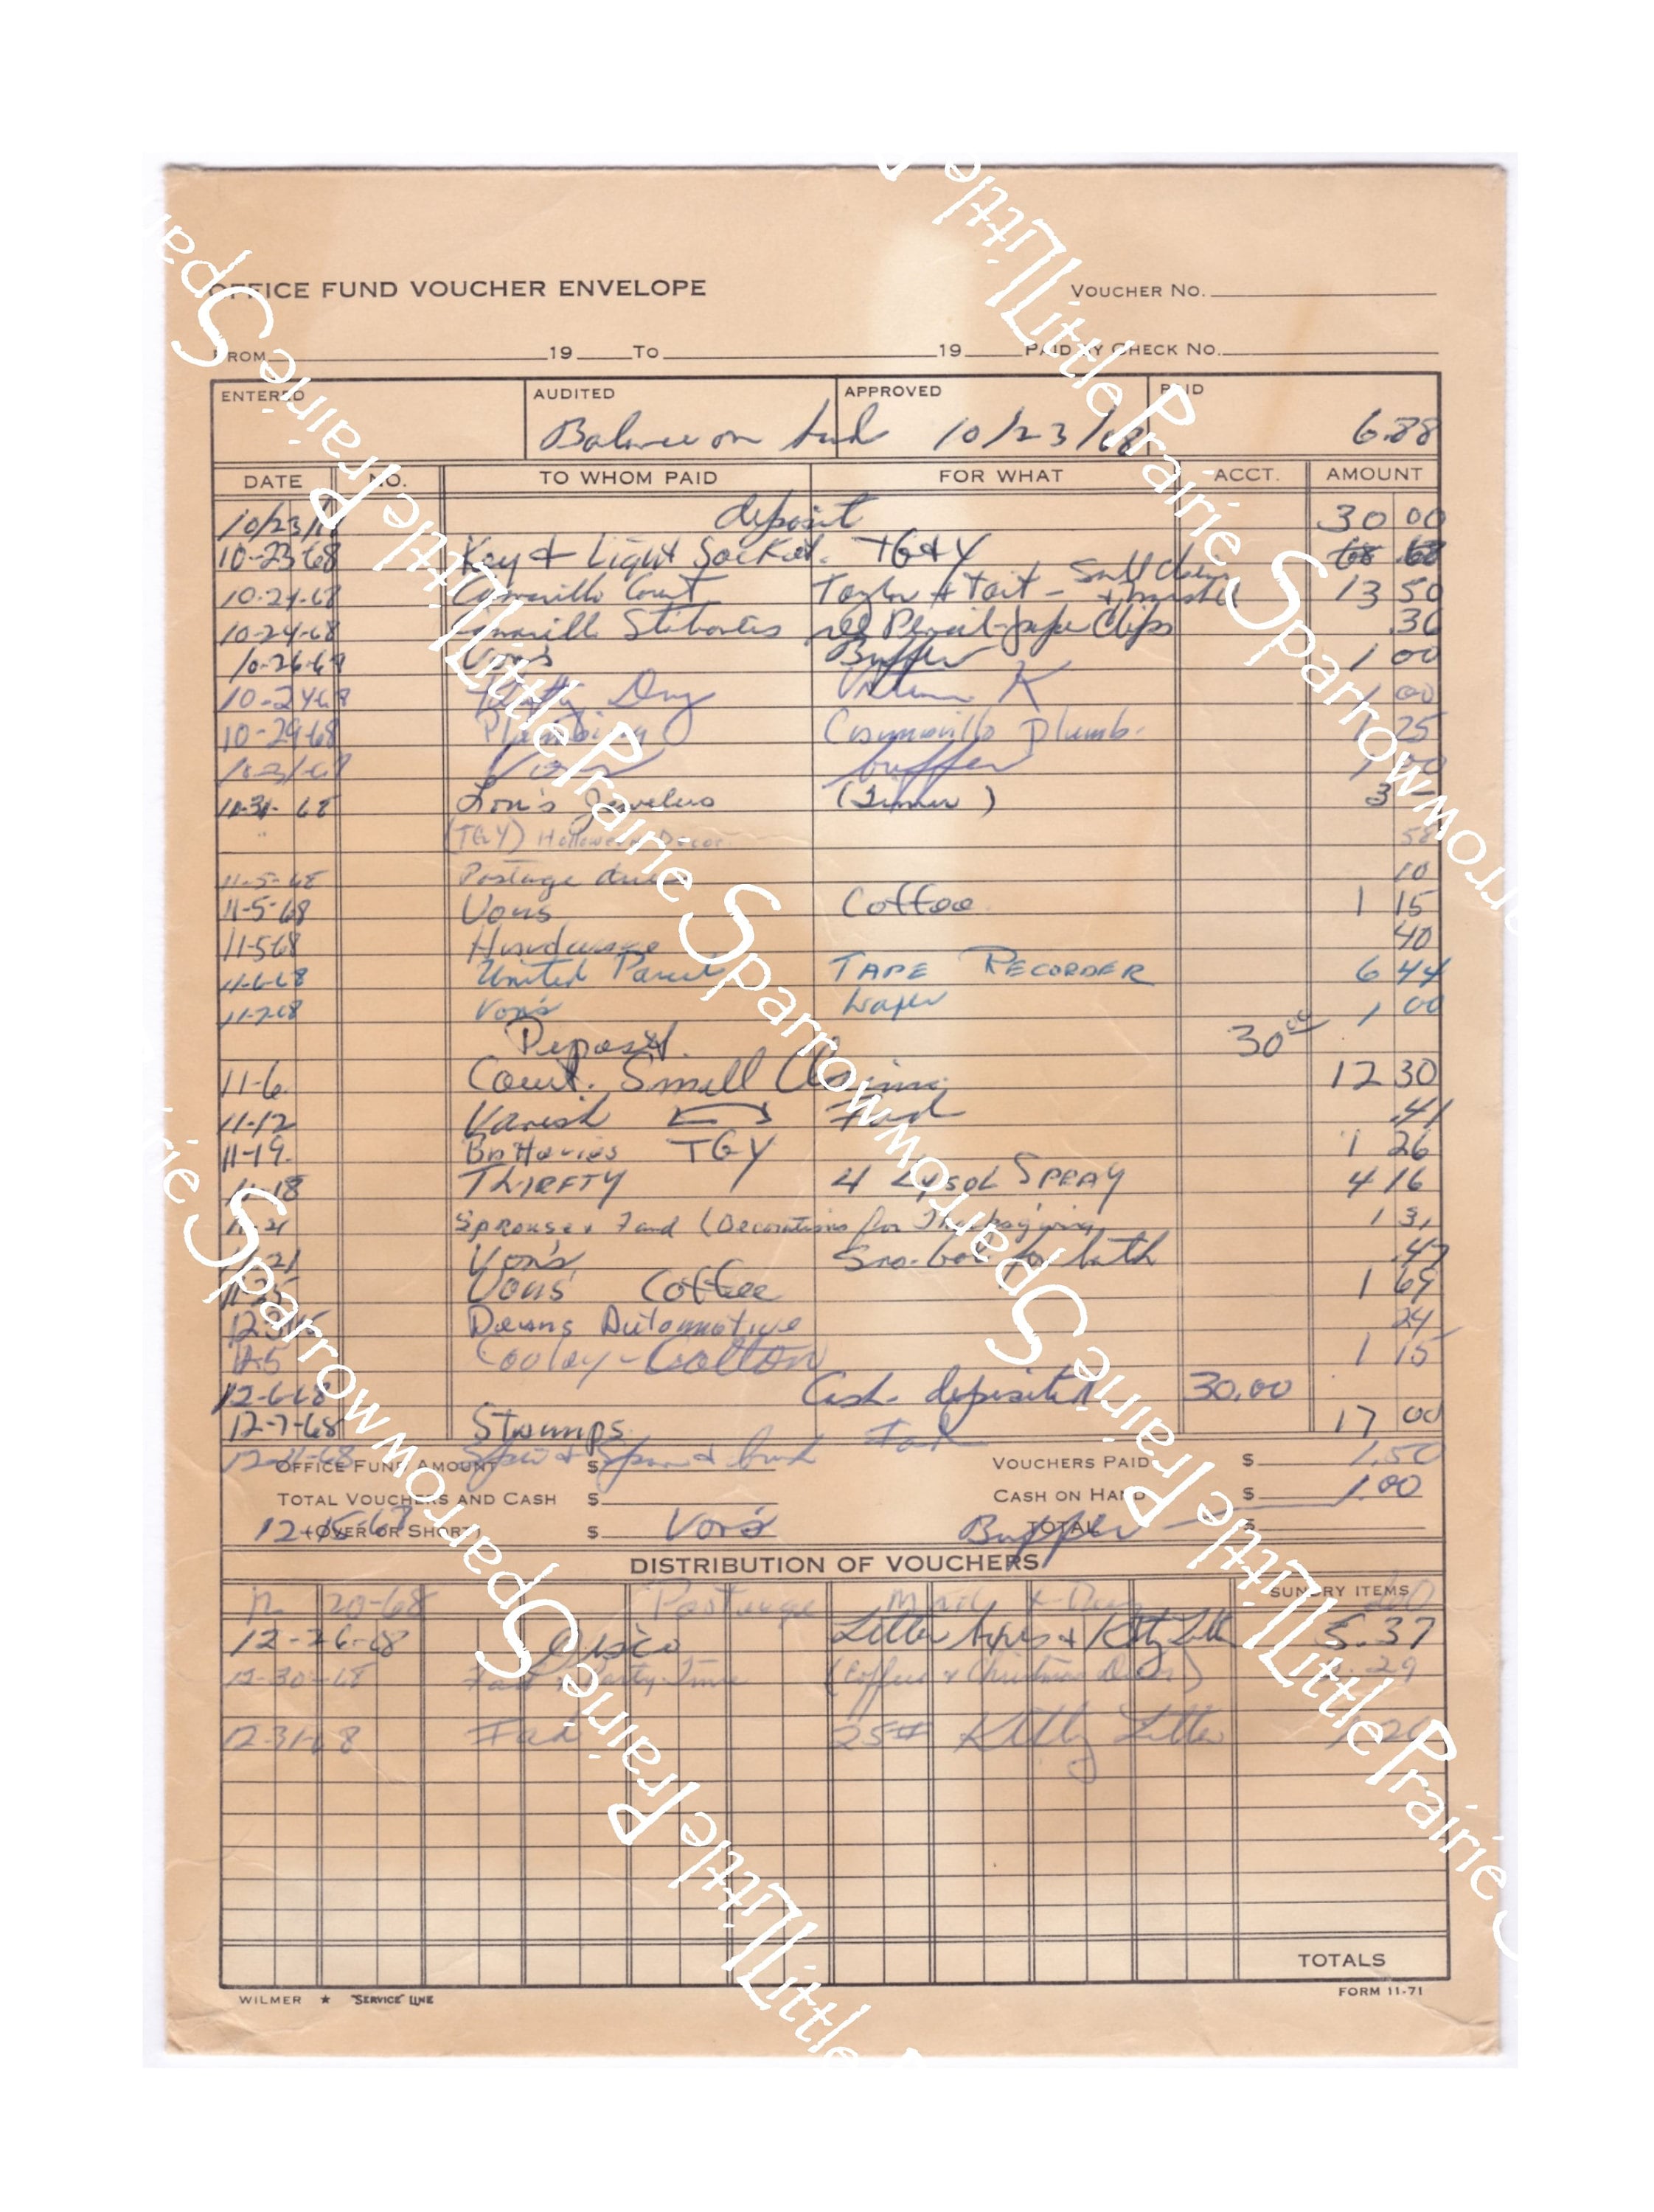 OFFICE FUND VOUCHER ENVELOPE VOUCHER NO.
FROM 19 TO 19 PAID BY CHECK NO.
ENTERED AUDITED APPROVED PAID
Balance on 10/23/68 6.88
DATE NO. TO WHOM PAID FOR WHAT ACCT. AMOUNT
10/23/ deposit 30 00
10-23-68 Key & Light Socket. TG&Y .68
10-24-68 Camarillo Court Taylor & Tait - 13 50
10-24-68 Camarillo Pencil - Clips 36
10-26-68 Von's Buffer 1 00
10-24-68 Drug K 1 00
10-29-68 Plumbing Camarillo Plumb. 1 25
Von's buffer
68 Lon's Jewelers 3
" (TG&Y) Decor. 58
11-5-68 Postage due 10
11-5-68 Vons Coffee 1 15
11-5-68 Hardware 40
11-6-68 United Parcel TAPE RECORDER 6 44
11-7-68 Von's 1 00
Deposit. 30 00
11-6. Court. Small Claims 12 30
11-12 Vanish .41
11-19. Batteries TGY 1 26
11-18 THRIFTY 4 LYSOL SPRAY 4 16
Sprouse & (Decorations for Thanksgiving) 1 31
Von's Sno-bol for bath .47
Vons Coffee 1 69
Downs Automotive 24
12-5 Cooley - Colton 1 15
12-6-68 Cash deposited 30.00
12-7-68 Stamps 17 00
OFFICE FUND AMOUNT $ Spic & Span & VOUCHERS PAID $ 1.50
TOTAL VOUCHERS AND CASH $ CASH ON HAND $ 1.00
12-15-68 (OVER OR SHORT) $ Von's Buffer TOTAL $
DISTRIBUTION OF VOUCHERS
20-68 Postage SUNDRY ITEMS
12-26-68 Letter & Kitty Litter 5.37
12-30-68 (Coffee & Christmas ) .29
12-31-68 25# Kitty Litter
TOTALS
WILMER ★ "SERVICE" LINE FORM 11-71
Little Prairie Sparrow